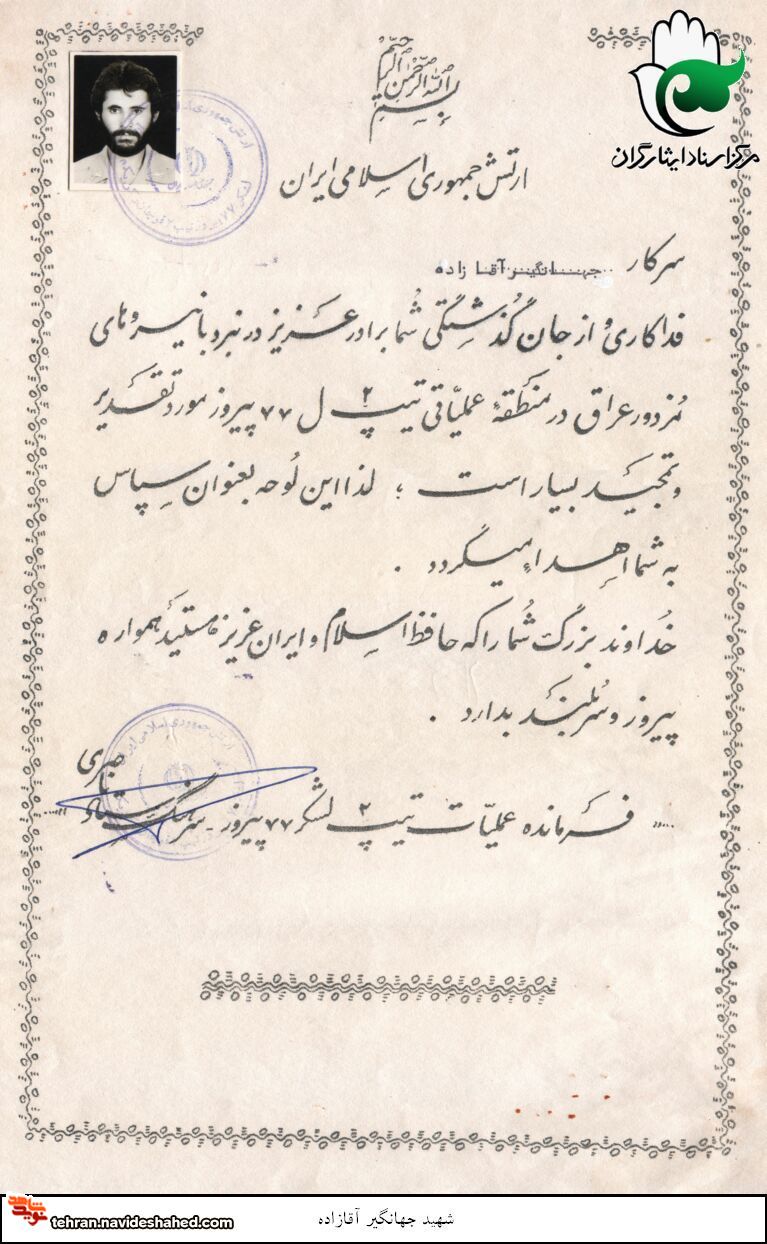 بسم الله الرحمن الرحیم
مرکز اسناد ایثارگران
ارتش جمهوری اسلامی ایران
سرکار جهانگیر آقا زاده
فداکاری و از جان گذشتگی شما برادر عزیز در نبرد با نیروهای
مزدور عراق در منطقهٔ عملیاتی تیپ ۲ ل ۷۷ پیروز مورد تقدیر
و تمجید بسیار است ؛ لذا این لوحه بعنوان سپاس
به شما اهداء میگردد .
خداوند بزرگ شما را که حافظ اسلام و ایران عزیز هستید همواره
پیروز و سربلند بدارد .
فرمانده عملیات تیپ ۲ لشگر ۷۷ پیروز - سرهنگ ستاد صبری
شهید جهانگیر آقازاده
نوید شاهد
tehran.navideshahed.com